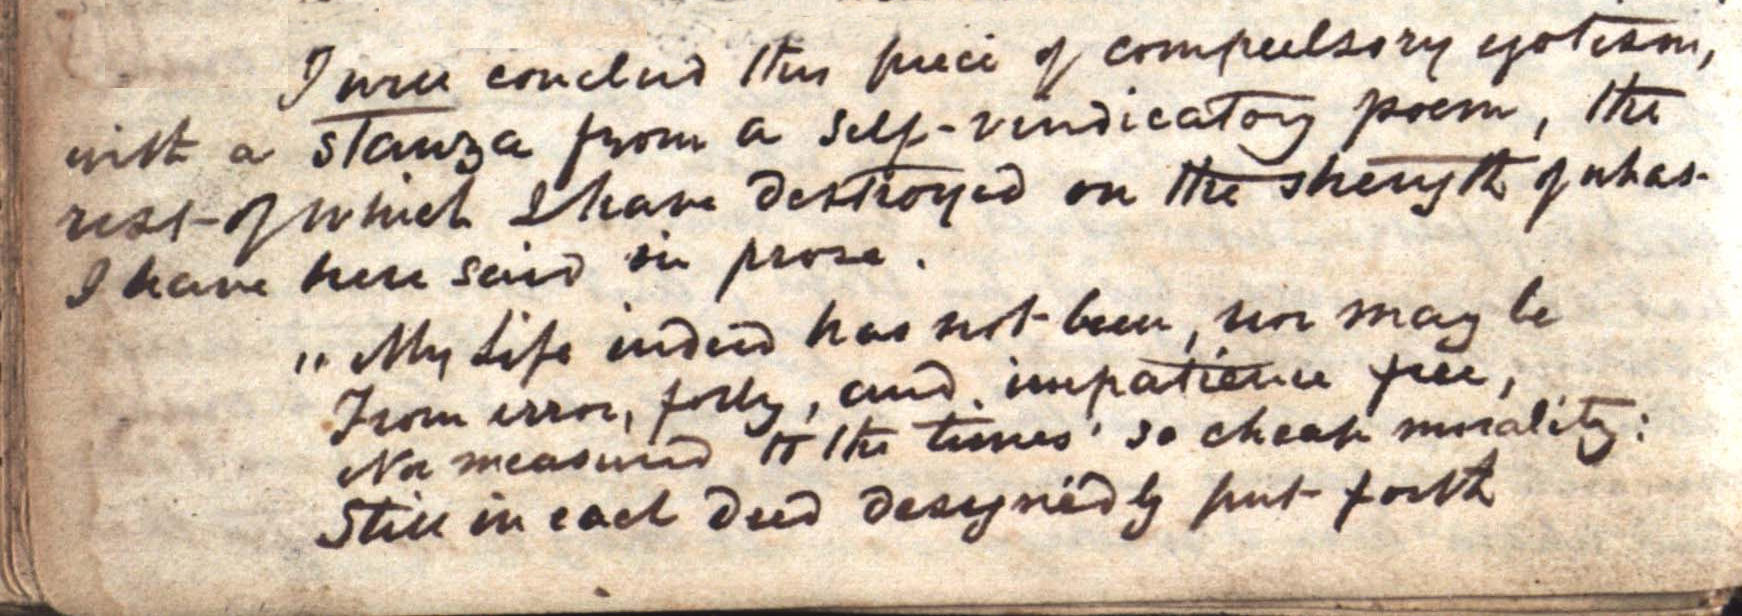 I will conclud this piece of compulsory egotism,
with a stanza from a self-vindicatory poem, the
rest of which I have destroyed on the strength of what
I have here said in prose.
„ My Life indeed has not been, nor may be
From error, folly, and impatience free,
Nor measured to the times' so cheap morality:
Still in each deed designedly put forth